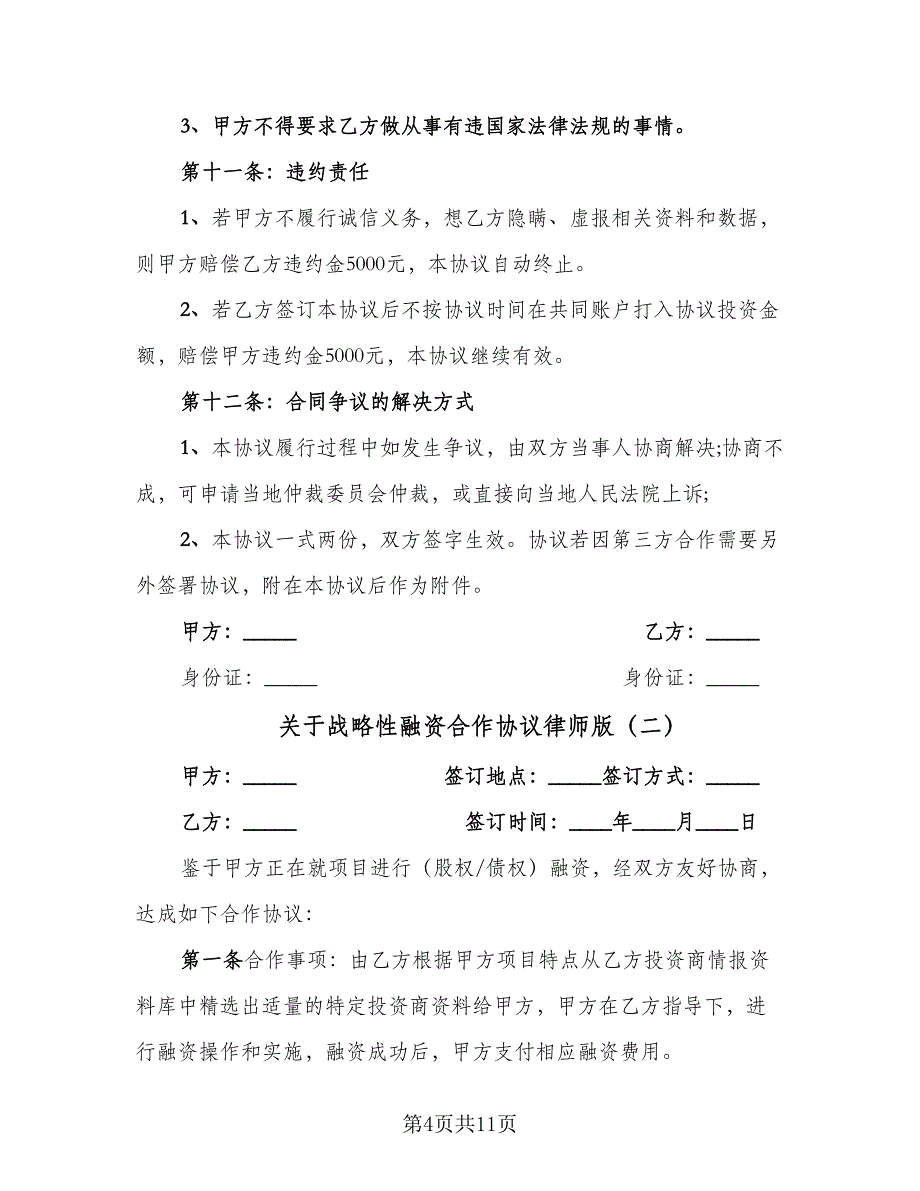 3、甲方不得要求乙方做从事有违国家法律法规的事情。
第十一条：违约责任
1、若甲方不履行诚信义务，想乙方隐瞒、虚报相关资料和数据，
则甲方赔偿乙方违约金5000元，本协议自动终止。
2、若乙方签订本协议后不按协议时间在共同账户打入协议投资金
额，赔偿甲方违约金5000元，本协议继续有效。
第十二条：合同争议的解决方式
1、本协议履行过程中如发生争议，由双方当事人协商解决;协商不
成，可申请当地仲裁委员会仲裁，或直接向当地人民法院上诉;
2、本协议一式两份，双方签字生效。协议若因第三方合作需要另
外签署协议，附在本协议后作为附件。
甲方：_____ 乙方：_____
身份证：_____ 身份证：_____
关于战略性融资合作协议律师版（二）
甲方：_____ 签订地点：_____签订方式：_____
乙方：_____ 签订时间：____年____月____日
鉴于甲方正在就项目进行（股权/债权）融资，经双方友好协商，
达成如下合作协议：
第一条合作事项：由乙方根据甲方项目特点从乙方投资商情报资
料库中精选出适量的特定投资商资料给甲方，甲方在乙方指导下，进
行融资操作和实施，融资成功后，甲方支付相应融资费用。
第4页共11页